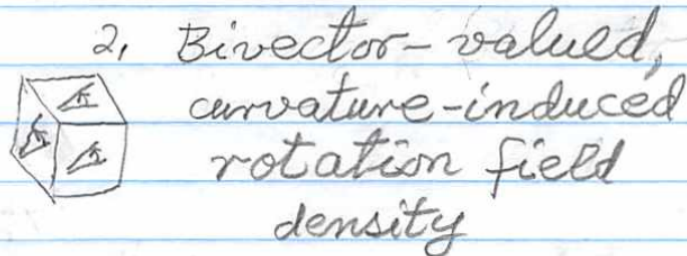 2, Bivector-valued,
curvature-induced
rotation field
density